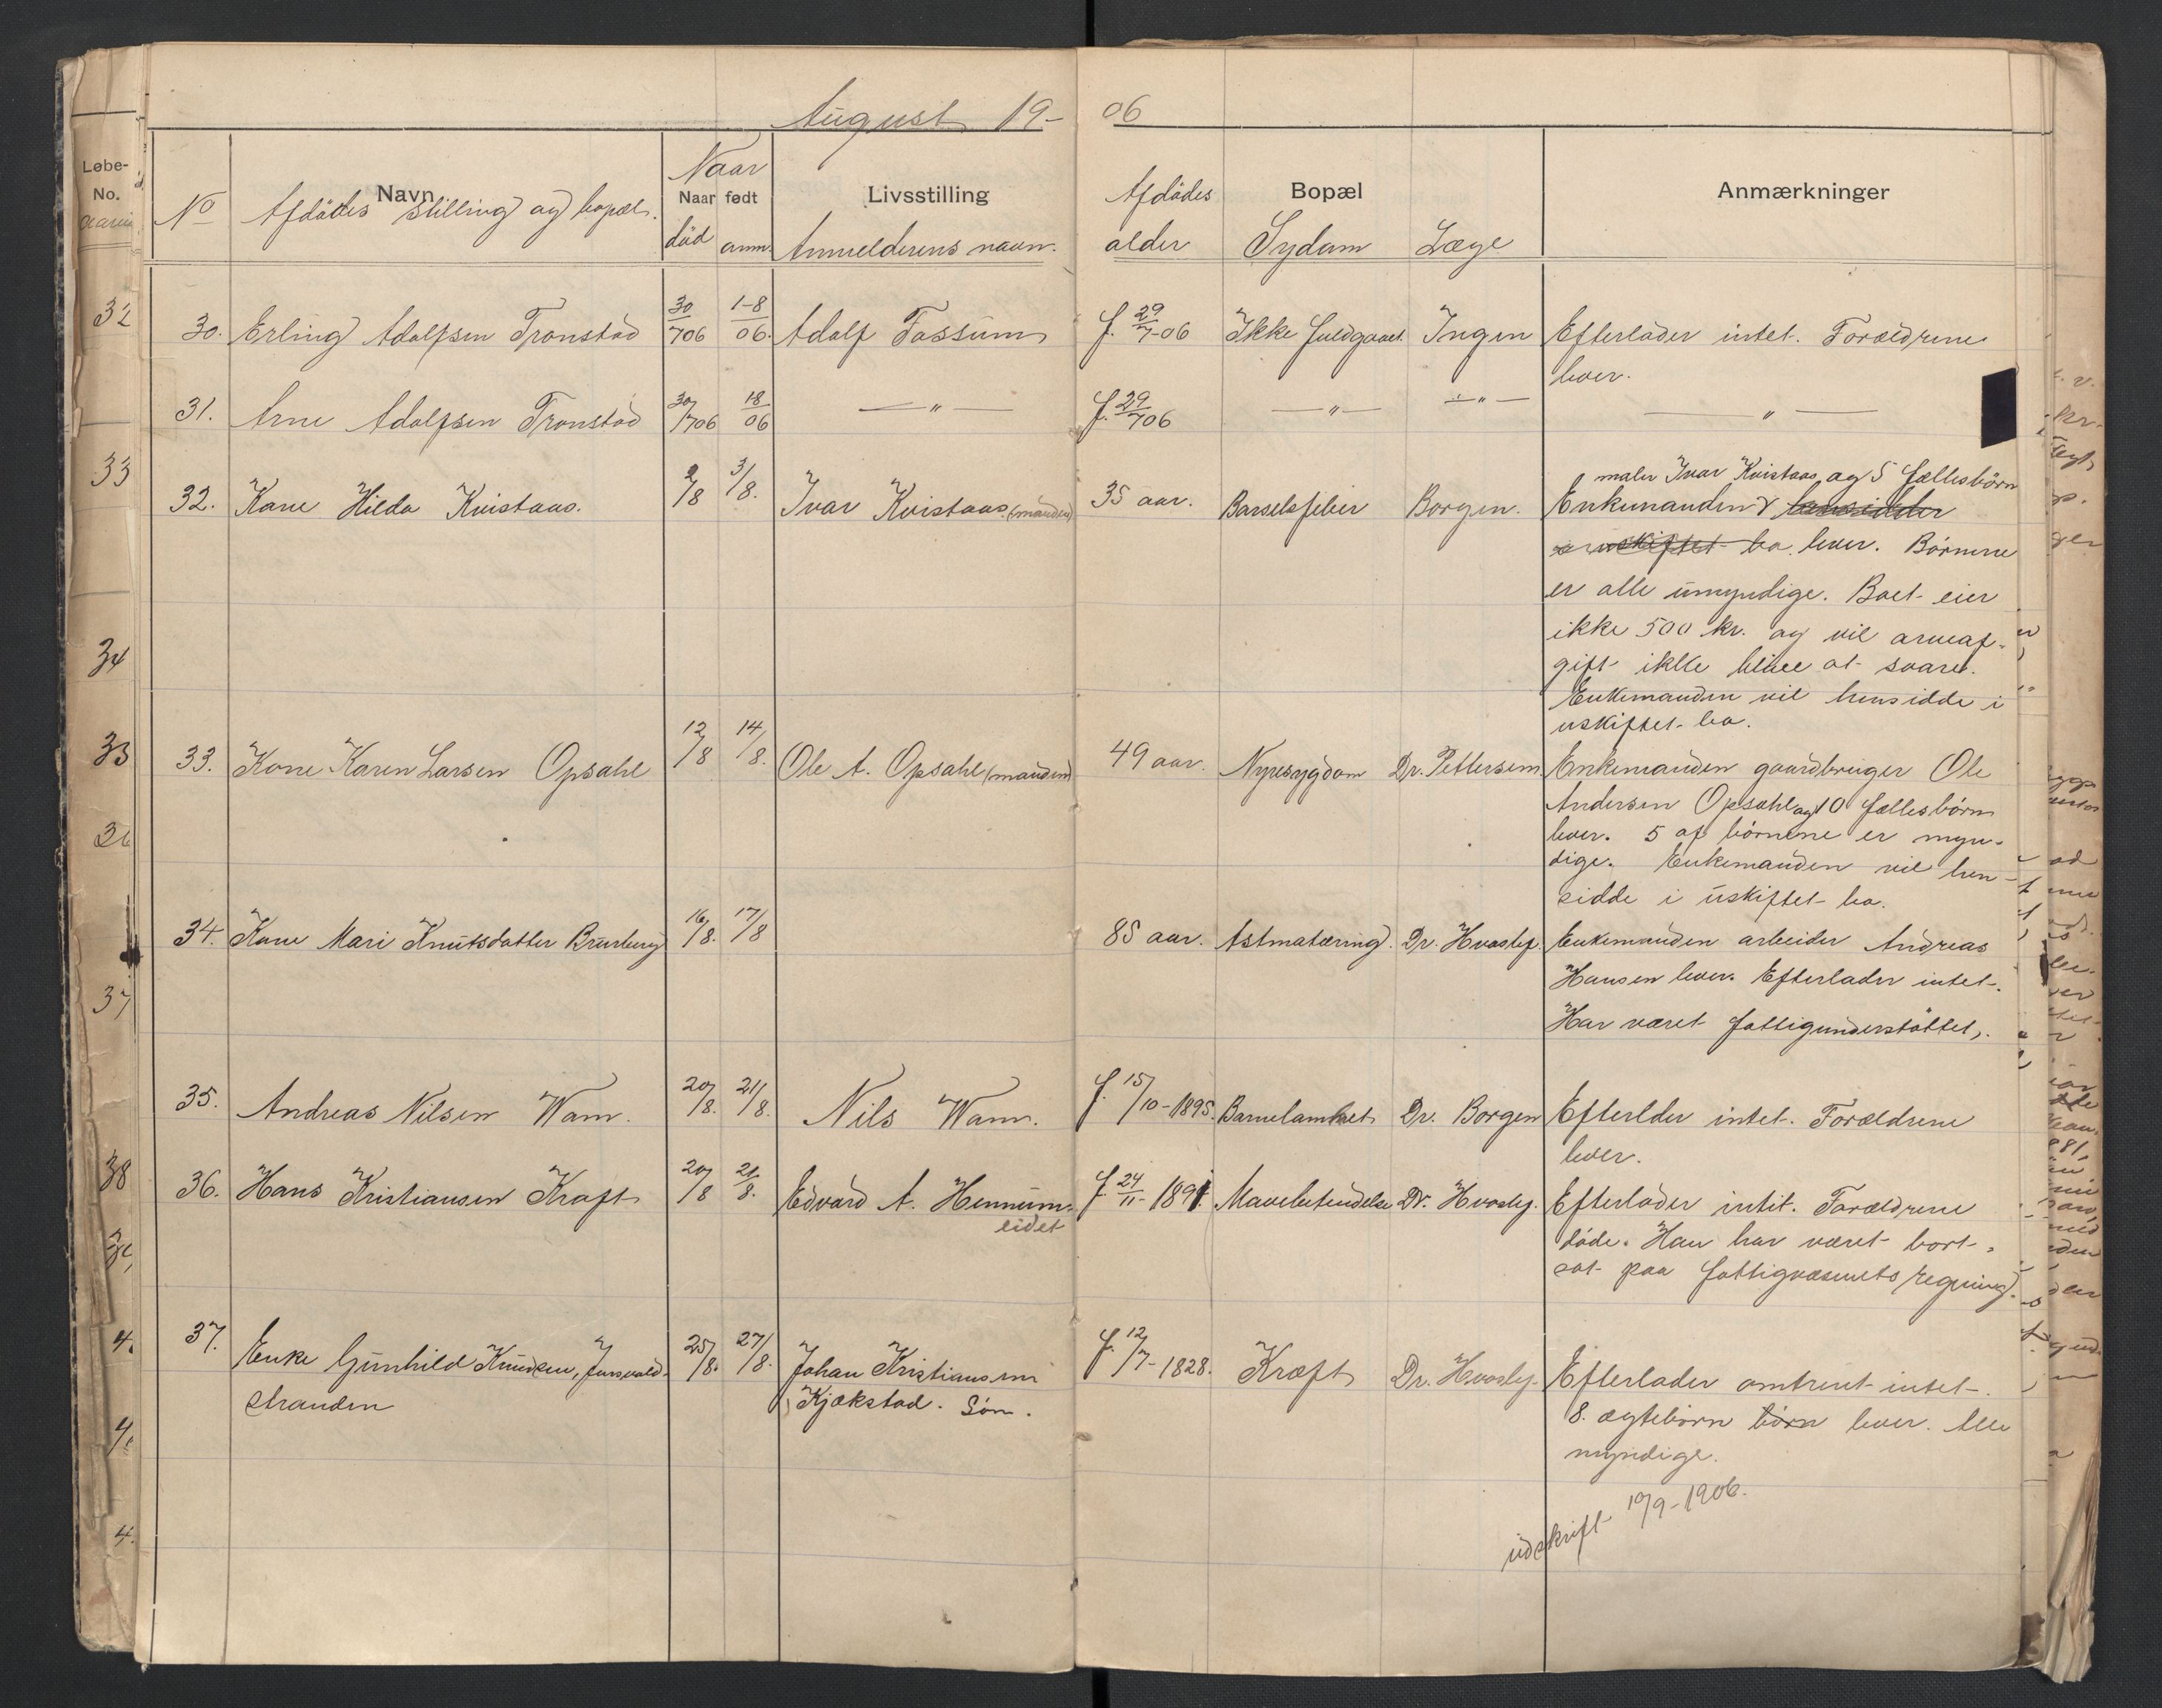 August 19-06
Løbe-No.
No Navn Afdødes stilling og bopæl.
Naar
Naar født
død anm.
Livsstilling
Anmelderens navn.
Afdødes alder
Bopæl
Sydom Læge
Anmærkninger
30. Erling Adolfsen Tronstad 30/7 06 1-8/06. Adolf Fossum f. 29/7-06 Ikke fuldgaaet. Ingen Efterlader intet. Forældrene
lever.
31. Arne Adolfsen Tronstad 30/7 06 18/06 —"— f. 29/7 06 —"— —"— —"—
maler Ivar Kvistaas og 5 fællesbörn
32. Kone Hilda Kvistaas. 2/8 3/8. Ivar Kvistaas (manden) 35 aar. Barselsfeber Borgen. Enkemanden
lever. Börnene
er alle umyndige. Boet eier
ikke 500 kr. og vil arveaf-
gift ikke blive at svare.
Enkemanden vil hensidde i
uskiftet bo.
33. Kone Karen Larsen Opsahl 12/8 14/8. Ole A. Opsahl (manden) 49 aar. Nyresygdom Dr. Pettersen. Enkemanden gaardbruger Ole
Andersen Opsahl og 10 fællesbörn
lever. 5 af börnene er myn-
dige. Enkemanden vil hen-
sidde i uskiftet bo.
34. Kone Mari Knutsdatter Bruberg 16/8. 17/8 85 aar. Astmatæring. Dr. Hvoslef. Enkemanden arbeider Andreas
Hansen lever. Efterlader intet.
Har været fattigunderstøttet.
35. Andreas Nilsen Wam. 20/8. 21/8. Nils Wam. f. 15/10-1895. Barnelamhet Dr. Borgen Efterlder intet. Forældrene
lever.
36. Hans Kristiansen Kraft 20/8 21/8. Edvard A. Hennum-
eidet f. 24/11-1891. Mavebetendelse Dr. Hvoslef. Efterlader intit. Forældrene
døde. Han har været bort-
sat paa fattigvæsenets regning.
37. Enke Gunhild Knudsen, 25/8. 27/8. Johan Kristiansen f. 12/7-1828. Kræft Dr. Hvoslef. Efterlader omtrent intet.
stranden Kjøkstad. Søn. 8. ægtebörn börn lever. Alle
myndige.
udskrift 10/9-1906.
32
33
34
35
36
37
38